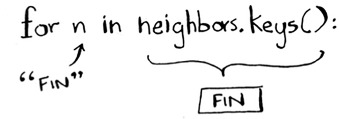 for n in neighbors.keys():
“FIN”
FIN